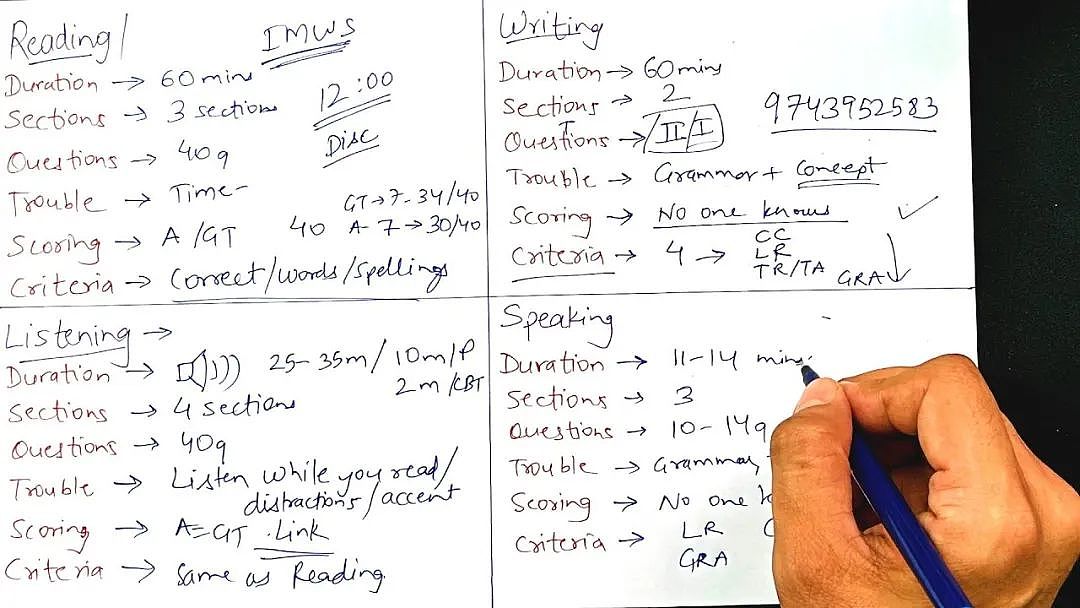 Reading/ IMWS
Duration → 60 mins
12:00
Sections → 3 sections
Disc
Questions → 40q
Trouble → Time-
GT → 7 - 34/40
Scoring → A/GT 40 A- 7 → 30/40
Criteria → Correct/words/spellings
Writing
Duration → 60 mins
Sections → 2
9743952583
Questions → T II/I
Trouble → Grammar + Concept
Scoring → No one knows
Criteria → 4 → CC
LR
TR/TA
GRA
Listening →
Duration → 25-35m/10m/P
2m/CBT
Sections → 4 sections
Questions → 40q
Trouble → Listen while you read/
distractions/accent
Scoring → A=GT .Link
Criteria → Same as Reading
Speaking
Duration → 11-14 mins
Sections → 3
Questions → 10-14q
Trouble → Grammar,
Scoring → No one
Criteria → LR
GRA